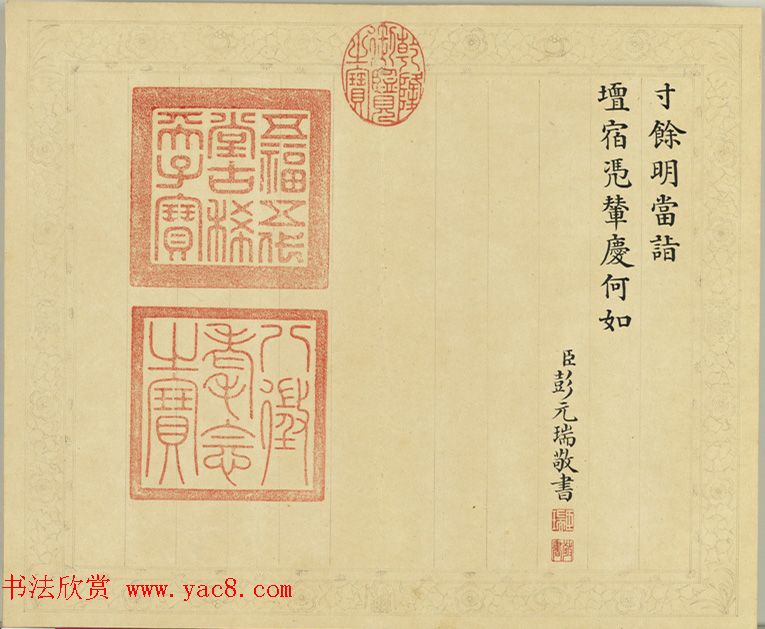 寸餘明當詣
壇宿凴輦慶何如
臣彭元瑞敬書
乾隆御覽之寶
五福五代堂古稀天子寶
八徵耄念之寶
书法欣赏 www.yac8.com